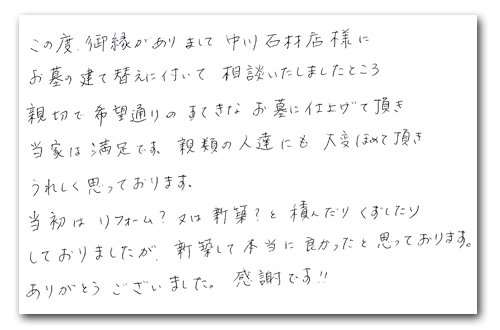 この度、御縁がありまして 中川石材店様に
お墓の建て替えに付いて 相談いたしましたところ
親切で 希望通りの すてきな お墓に仕上げて頂き
当家は満足です。親類の人達にも 大変ほめて頂き
うれしく思っております。
当初は リフォーム？又は新築？と積んだり くずしたり
しておりましたが、新築して本当に良かったと思っております。
ありがとう ございました。 感謝です!!